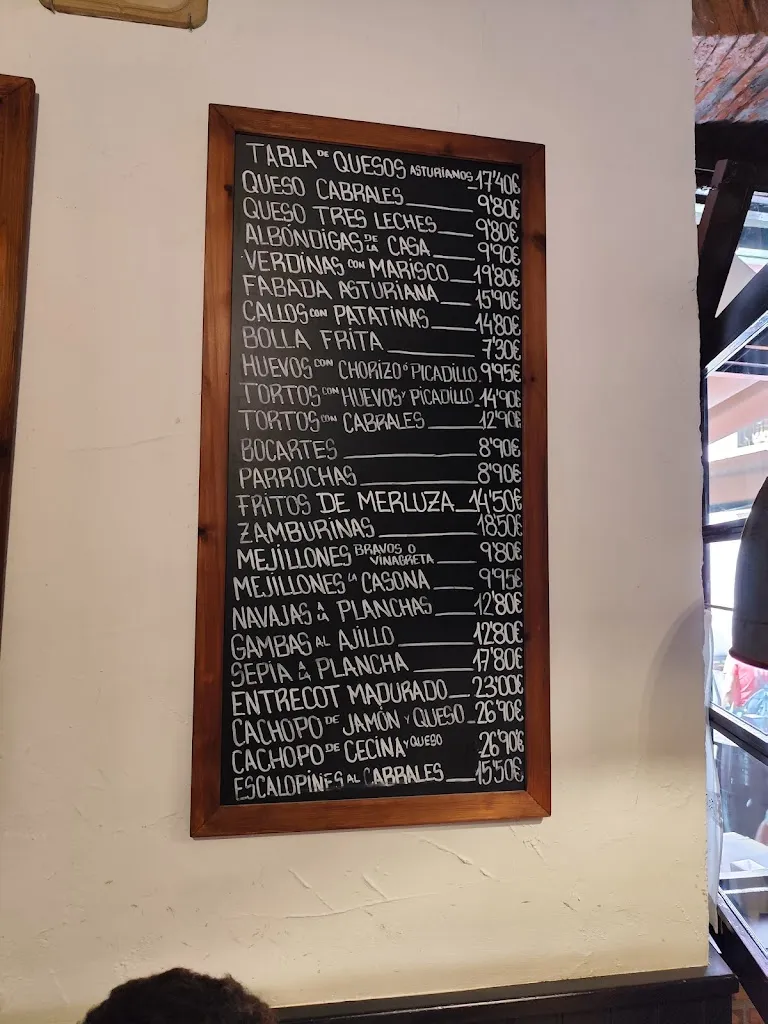 TABLA DE QUESOS ASTURIANOS 17'40€
QUESO CABRALES 9'80€
QUESO TRES LECHES 9'80€
ALBÓNDIGAS DE LA CASA 9'90€
VERDINAS CON MARISCO 19'80€
FABADA ASTURIANA 15'90€
CALLOS CON PATATINAS 14'80€
BOLLA FRITA 7'30€
HUEVOS CON CHORIZO Ó PICADILLO 9'95€
TORTOS CON HUEVOS Y PICADILLO 14'90€
TORTOS CON CABRALES 12'90€
BOCARTES 8'90€
PARROCHAS 8'90€
FRITOS DE MERLUZA 14'50€
ZAMBURIÑAS 18'50€
MEJILLONES BRAVOS O VINAGRETA 9'80€
MEJILLONES LA CASONA 9'95€
NAVAJAS A LA PLANCHAS 12'80€
GAMBAS AL AJILLO 12'80€
SEPIA A LA PLANCHA 17'80€
ENTRECOT MADURADO 23'00€
CACHOPO DE JAMÓN Y QUESO 26'90€
CACHOPO DE CECINA Y QUESO 26'90€
ESCALOPINES AL CABRALES 15'50€